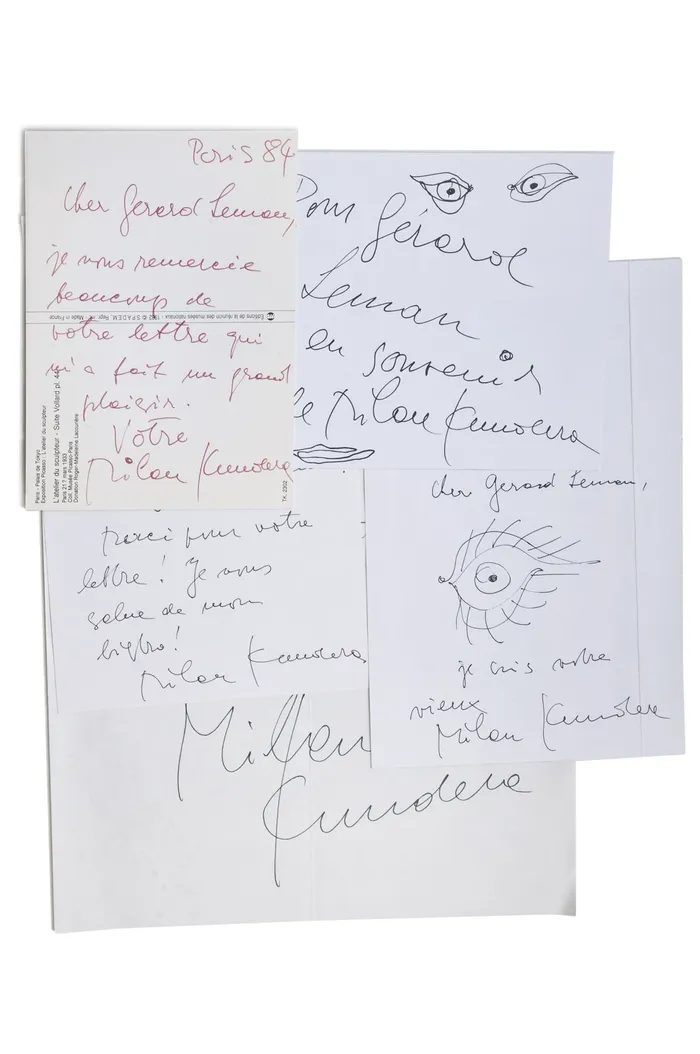 Paris 84
Cher Gérard Leman,
je vous remercie
beaucoup de
votre lettre qui
m'a fait un grand
plaisir.
Votre
Milan Kundera
Paris - Palais de Tokyo
Exposition Picasso : L'atelier du sculpteur
L'atelier du sculpteur - Suite Vollard pl.
Paris 21? mars 1933
Coll. Musée Picasso-Paris
Donation Roger-Madeleine Lacourière
Éditions de la réunion des musées nationaux - 1983 © S.P.A.D.E.M. Repr. Made in France
TK. 2302
Pour Gérard
Leman
en souvenir
de Milan Kundera
Cher Gerard Leman,
je suis votre
vieux
Milan Kundera
merci pour votre
lettre ! Je vous
salue de mon
bistro !
Milan Kundera
Milan
Kundera